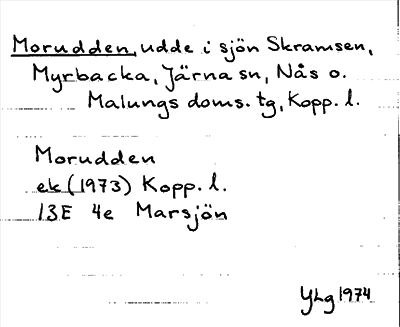 Morudden, udde i sjön Skramsen,
Myrbacka, Järna sn, Nås o.
Malungs doms. tg, Kopp. l.
Morudden
ek (1973) Kopp. l.
13E 4e Marsjön
YLg 1974